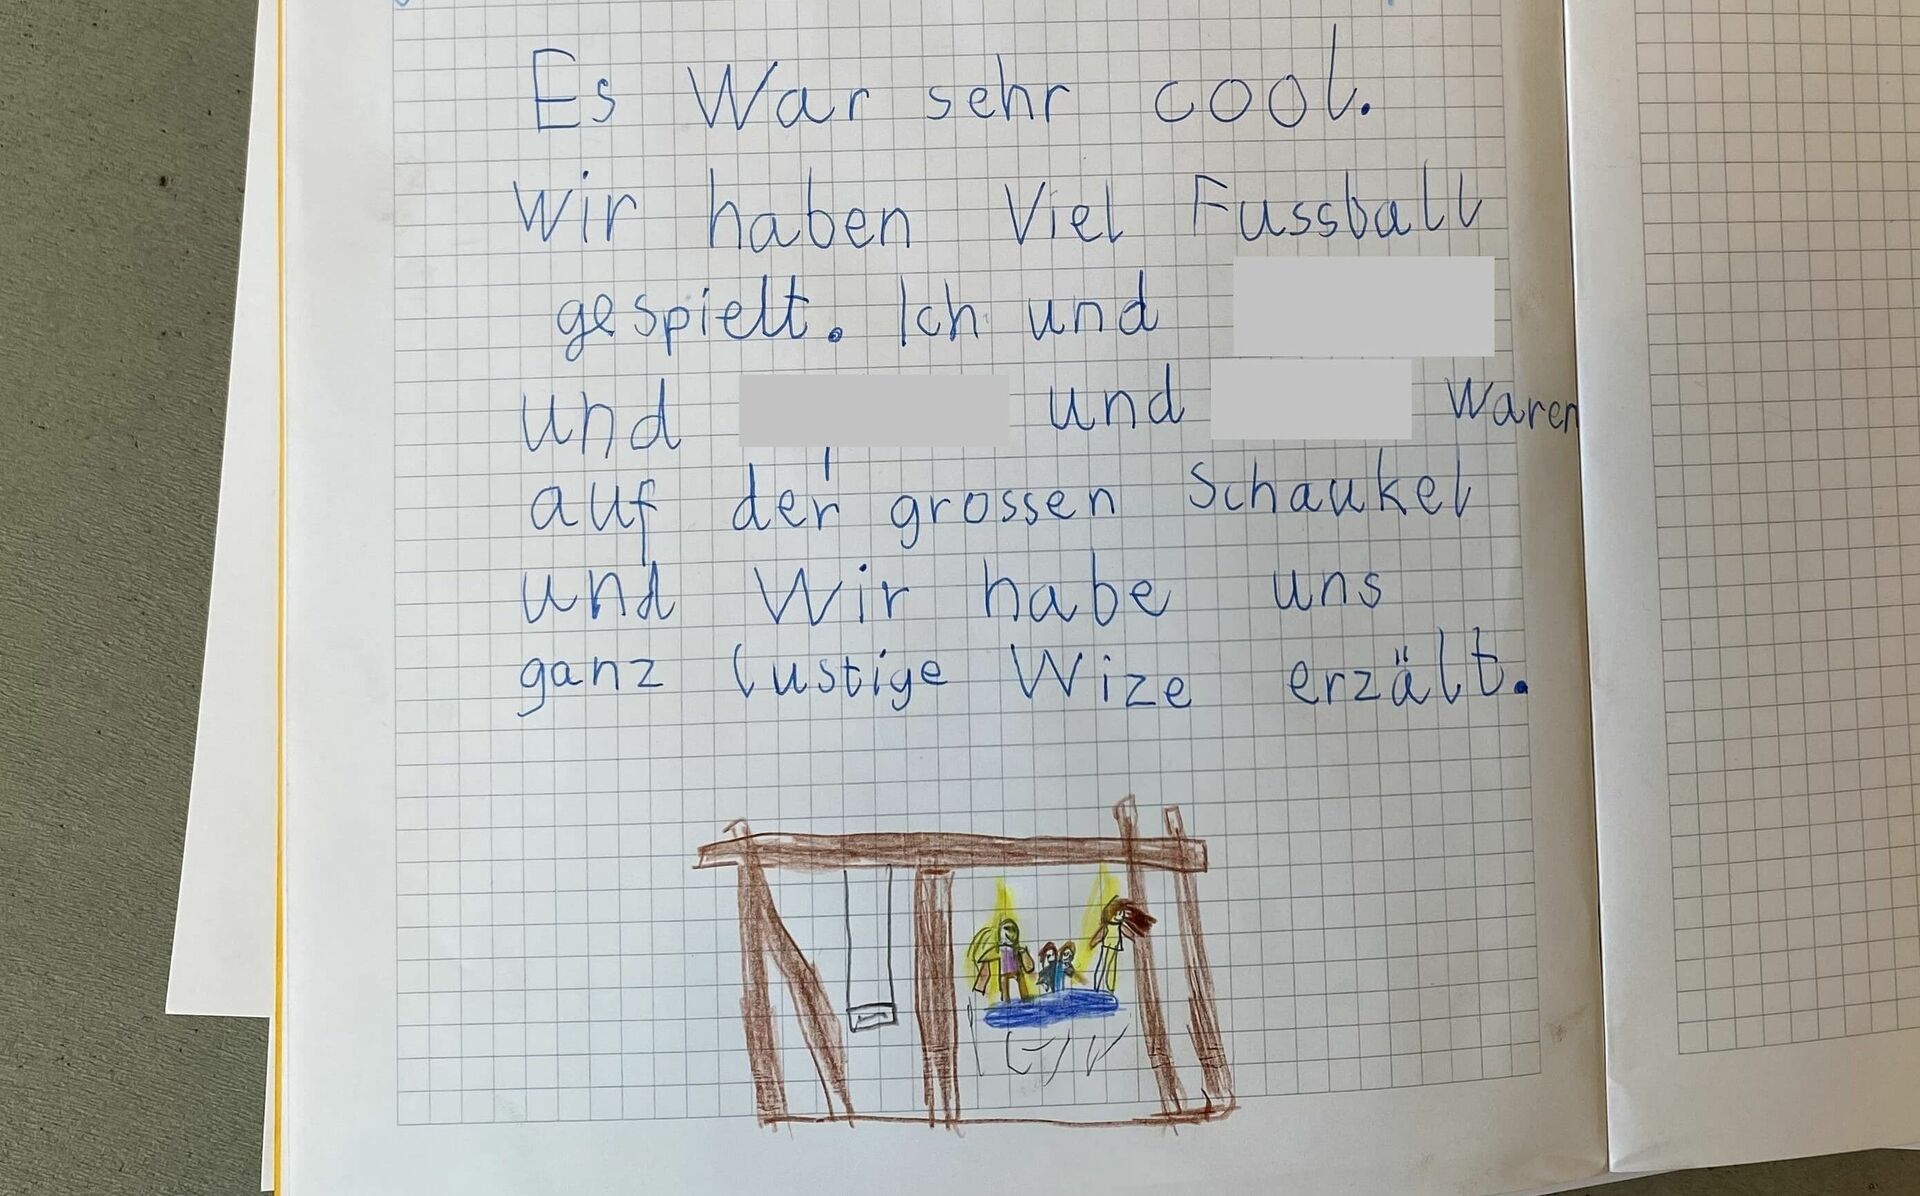 Es War sehr cool.
Wir haben Viel Fussball
gespielt. Ich und
und und waren
auf der grossen Schaukel
und Wir habe uns
ganz lustige Wize erzält.